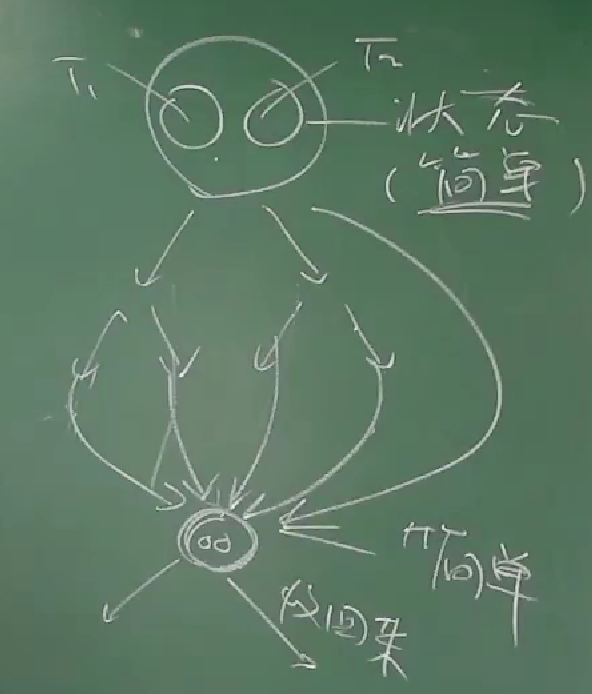 T₁
T₂
状态
(简单)
简单
回来